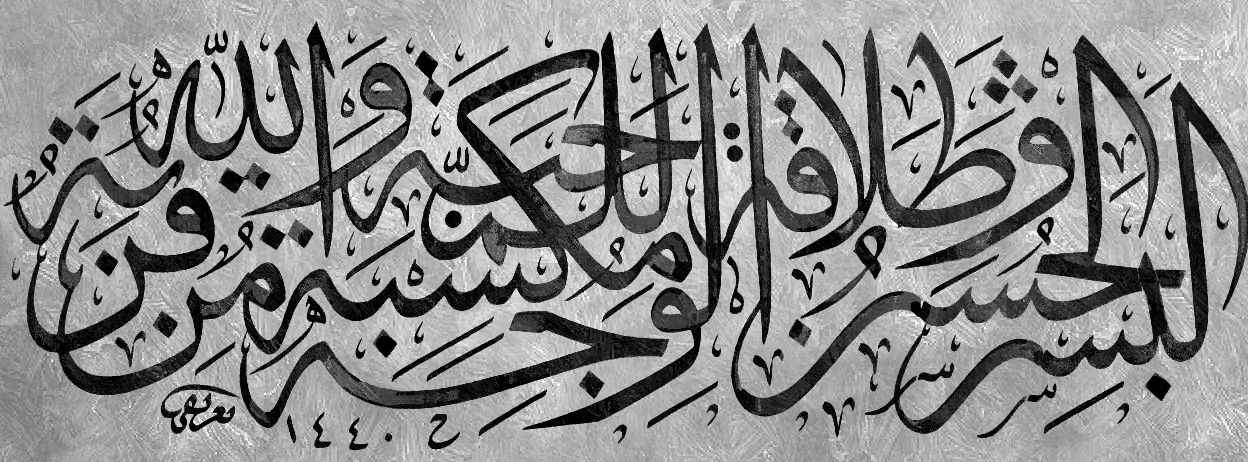 البشر الحسن وطلاقة الوجه مكسبة للمحبة وقربة من الله
١٤٤٠